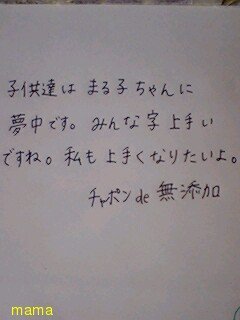 子供達は まる子ちゃんに
夢中です。みんな字上手い
ですね。私も上手くなりたいよ。
チャポン de 無添加
mama